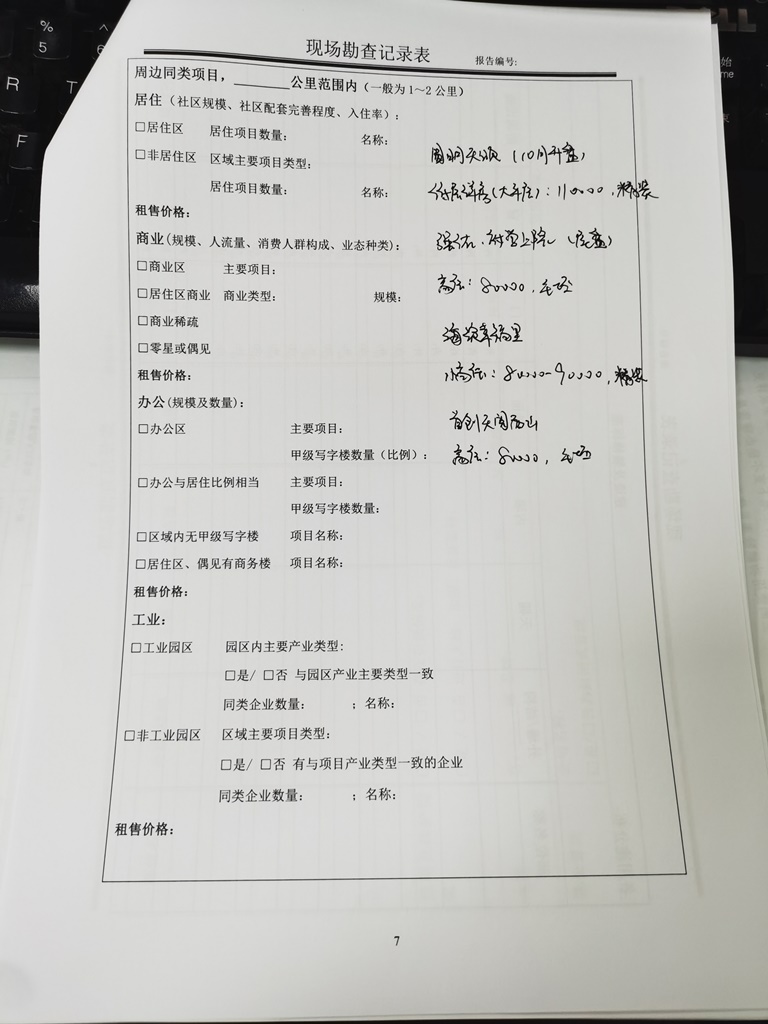 现场勘查记录表
报告编号:
周边同类项目，______公里范围内（一般为1～2公里）
居住（社区规模、社区配套完善程度、入住率）;
□居住区 居住项目数量: 名称:
□非居住区 区域主要项目类型:
（10月开盘）
居住项目数量: 名称:
: 110000, 精装
租售价格:
商业(规模、人流量、消费人群构成、业态种类):
（尾盘）
□商业区 主要项目:
□居住区商业 商业类型: 规模:
高层: 80000, 毛坯
□商业稀疏
□零星或偶见
租售价格:
小高层: 80000-90000, 精装
办公(规模及数量):
□办公区 主要项目:
首创天阅西山
甲级写字楼数量（比例）:
高层: 80000, 毛坯
□办公与居住比例相当 主要项目:
甲级写字楼数量:
□区域内无甲级写字楼 项目名称:
□居住区、偶见有商务楼 项目名称:
租售价格:
工业:
□工业园区 园区内主要产业类型:
□是/ □否 与园区产业主要类型一致
同类企业数量: ；名称:
□非工业园区 区域主要项目类型:
□是/ □否 有与项目产业类型一致的企业
同类企业数量: ；名称:
租售价格:
7